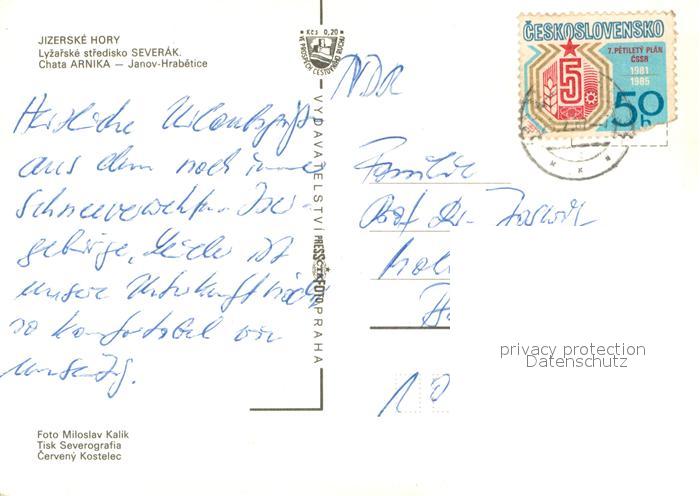 JIZERSKÉ HORY
Lyžařské středisko SEVERÁK.
Chata ARNIKA — Janov-Hrabětice
Kčs 0,20
VE PROSPĚCH CESTOVNÍHO RUCHU
ČESKOSLOVENSKO
7. PĚTILETÝ PLÁN
ČSSR
1981
1985
5
50h
Herzliche Urlaubsgrüße
aus dem noch immer
schneeverwehten Iser-
gebirge. Leider ist
unsere Unterkunft nicht
so komfortabel wie
NDR
Familie
Prof. Dr.
VYDAVATELSTVÍ PRESSFOTO PRAHA
privacy protection
Datenschutz
Foto Miloslav Kalík
Tisk Severografia
Červený Kostelec